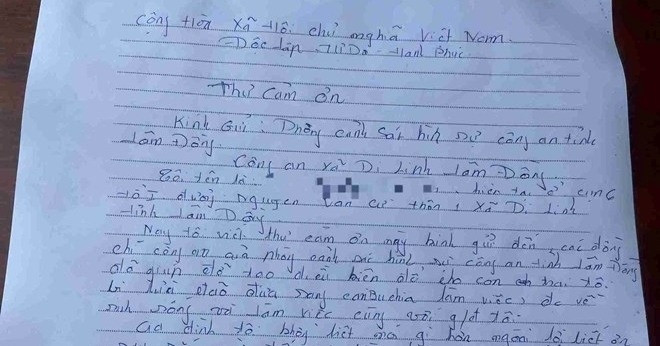 Cộng Hòa Xã Hội chủ nghĩa Việt Nam.
Độc lập Tự Do Hạnh Phúc.
Thư Cảm ơn
Kính Gửi: Phòng cảnh sát hình sự công an tỉnh
Lâm Đồng.
Công an xã Di Linh Lâm Đồng.
Tôi tên là hiện tại ở cụm 6
tổ I đường nguyễn văn cừ thôn 1 xã Di Linh
tỉnh Lâm Đồng.
Nay tô viết thư cảm ơn này kính gửi đến các đồng
chí công an của phòng cảnh sác hình sự công an tỉnh Lâm Đồng
đã giúp đỡ tạo điều kiện để cho con trai tô.
bị lừa đảo đưa sang cambuchia làm việc, đc về
sinh sống với làm việc cùng với gđ tô.
Gia đình tô không biết nói gì hơn ngoài lời biết ơn